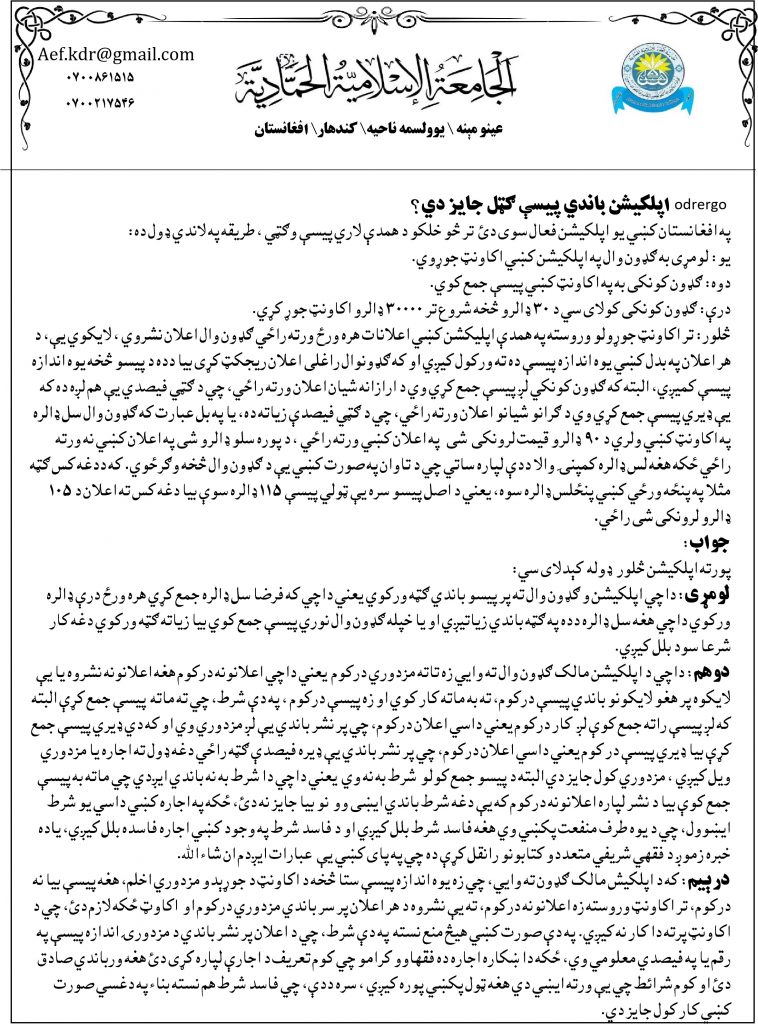 Aef.kdr@gmail.com
۰۷۰۰۸۶۱۵۱۵
۰۷۰۰۲۱۷۵۴۶
الجَامعَةُ الإِسْلَامِيَّةُ الحَمَّادِيَّة
عینو مېنه \ یوولسمه ناحیه\ کندهار\ افغانستان
odrergo اپلکیشن باندي پیسې ګټل جایز دي؟
په افغانستان کښي یو اپلکیشن فعال سوی دئ تر څو خلکو د همدې لاري پیسې وګټي ، طریقه په لاندي ډول ده:
یو: لومړی به ګډون وال په اپلکیشن کښي اکاونټ جوړوي.
دوه: ګډون کونکی به په اکاونټ کښي پیسې جمع کوي.
درې: ګډون کونکی کولای سي د ۳۰ ډالرو څخه شروع تر ۳۰۰۰۰ ډالرو اکاونټ جوړ کړي.
څلور: تر اکاونټ جوړولو وروسته په همدې اپلیکشن کښي اعلانات هره ورځ ورته راځي ګډون وال اعلان نشروي ، لایکوي یې، د
هر اعلان په بدل کښي یوه اندازه پیسې ده ته ورکول کیږي او که ګډونوال راغلی اعلان ریجکټ کړی بیا د ده د پیسو څخه یوه اندازه
پیسې کمیږي، البته که ګډون کونکي لږ پیسې جمع کړي وي د ارزانه شیان اعلان ورته راځي، چي د ګټي فیصدي یې هم لږه ده که
یې ډیري پیسې جمع کړي وي د ګرانو شیانو اعلان ورته راځي، چي د ګټي فیصدي زیاته ده، یا په بل عبارت که ګډون وال سل ډالره
په اکاونټ کښي ولري د ۹۰ ډالرو قیمت لرونکی شی په اعلان کښي ورته راځي ، د پوره سلو ډالرو شی په اعلان کښي نه ورته
راځي ځکه هغه لس ډالره کمپنۍ والا ددې لپاره ساتي چي د تاوان په صورت کښي یې د ګډون وال څخه وګرځوي. که ددغه کس ګټه
مثلا په پنځه ورځي کښي پنځلس ډالره سوه، یعني د اصل پیسو سره یې ټولي پیسې ۱۱۵ ډالره سوې بیا دغه کس ته اعلان د ۱۰۵
ډالرو لرونکی شی راځي.
جواب:
پورته اپلکیشن څلور ډوله کېدلای سي:
لومړی: دا چي اپلکیشن و ګډون وال ته پر پیسو باندي ګټه ورکوي یعني دا چي که فرضا سل ډالره جمع کړي هره ورځ درې ډالره
ورکوي دا چي هغه سل ډالره د ده په ګټه باندي زیاتیږي او یا خپله ګډون وال نوري پیسې جمع کوي بیا زیاته ګټه ورکوي دغه کار
شرعا سود بلل کیږي.
دوهم: دا چي د اپلکیشن مالک ګډون وال ته وایي زه تا ته مزدوري درکوم یعني دا چي اعلانونه درکوم هغه اعلانونه نشروه یا یې
لایکوه پر هغو لایکونو باندي پیسې درکوم، ته به ما ته کار کوې او زه پیسې درکوم ، په دې شرط، چي ته ما ته پیسې جمع کړې البته
که لږ پیسې راته جمع کوې لږ کار درکوم یعني داسي اعلان درکوم، چي پر نشر باندي یې لږ مزدوري وي او که دي ډیري پیسې جمع
کړې بیا ډیري پیسې درکوم یعني داسي اعلان درکوم، چي پر نشر باندي یې ډیره فیصدي ګټه راځي دغه ډول ته اجاره یا مزدوري
ویل کیږي ، مزدوري کول جایز دي البته د پیسو جمع کولو شرط به نه وي یعني دا چي دا شرط به نه باندي ایږدي چي ما ته به پیسې
جمع کوې بیا د نشر لپاره اعلانونه درکوم که یې دغه شرط باندي ایښی وو نو بیا جایز نه دئ، ځکه په اجاره کښي داسي یو شرط
ایښوول، چي د یوه طرف منفعت پکښي وي هغه فاسد شرط بلل کیږي او د فاسد شرط په وجود کښي اجاره فاسده بلل کیږي، یاده
خبره زموږ د فقهي شریفي متعددو کتابونو را نقل کړې ده چي په پای کښي یې عبارات ایږدم ان شاء الله.
درېیم: که د اپلکیش مالک ګډون ته وایي، چي زه یوه اندازه پیسې ستا څخه د اکاونټ د جوړېدو مزدوري اخلم، هغه پیسې بیا نه
درکوم، تر اکاونټ وروسته زه اعلانونه درکوم، ته یې نشروه د هر اعلان پر سر باندي مزدوري درکوم او اکاوټ ځکه لازم دئ، چي د
اکاونټ پرته دا کار نه کیږي. په دې صورت کښي هیڅ منع نسته په دې شرط، چي د اعلان پر نشر باندي د مزدورۍ اندازه پیسې په
رقم یا په فیصدي معلومي وي، ځکه دا ښکاره اجاره ده فقهاوو کرامو چي کوم تعریف د اجارې لپاره کړی دئ هغه ورباندي صادق
دئ او کوم شرائط چي یې ورته ایښي دي هغه ټول پکښي پوره کیږي ، سره ددې، چي فاسد شرط هم نسته بناء په دغسي صورت
کښي کار کول جایز دي.